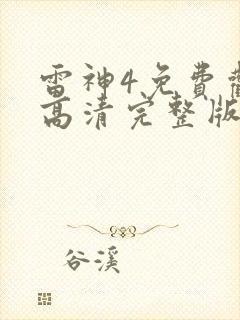 雷神4免费
高清完整版
谷溪